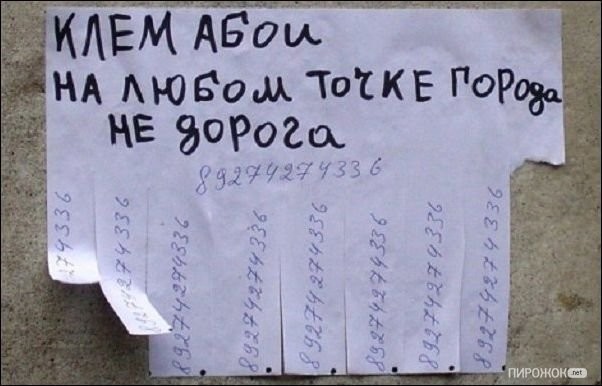 КЛЕМ АБОИ
НА ЛЮБОМ ТОЧКЕ ГОРОДА
НЕ ДОРОГА
89274274336
274336
89274274336
89274274336
89274274336
89274274336
89274274336
89274274336
89274274336
ПИРОЖОК.net